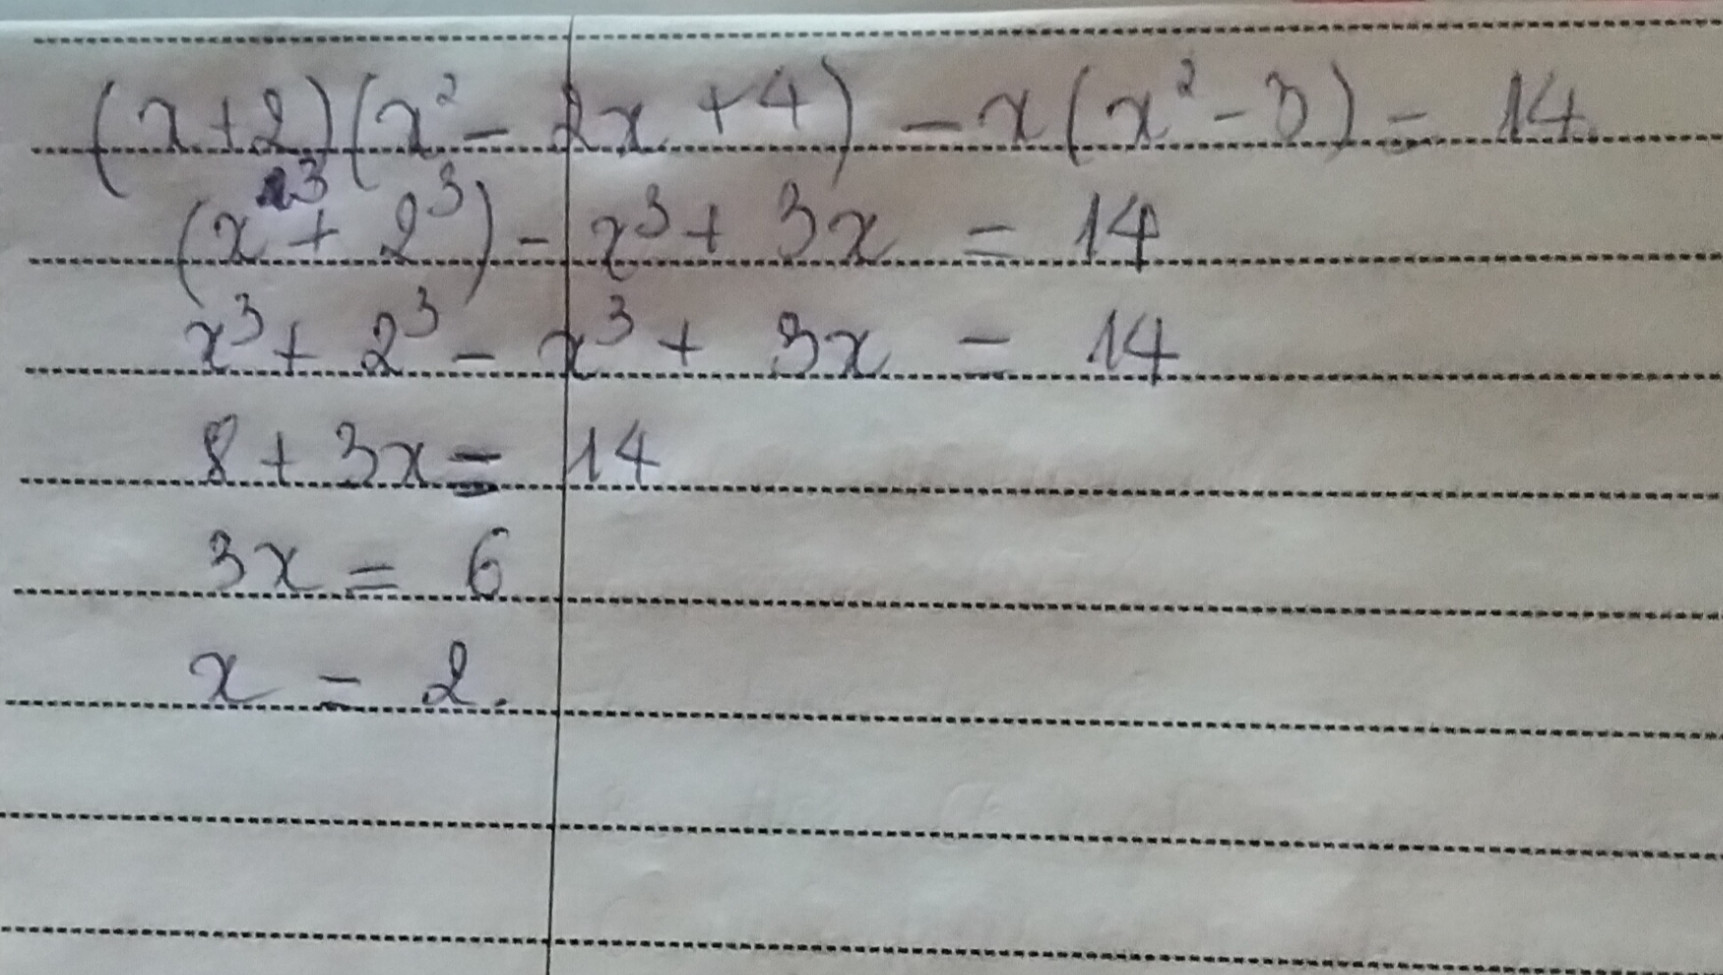 (x+2)(x² - 2x + 4) - x(x² - 3) = 14.
(x³ + 2³) - x³ + 3x = 14
x³ + 2³ - x³ + 3x = 14
8 + 3x = 14
3x = 6
x = 2.